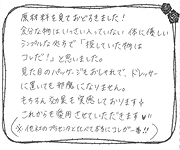 原材料を見ておどろきました!
余分な物はいっさい入っていない 体に優しい
シンプルな処方で「探していた物は
コレだ!」と思いました。
見た目のパッケージもおしゃれで、ドレッサー
に置いても邪魔になりません。
もちろん効果も実感しております
これからも愛用させていただきます♥
(※他社のプラセンタと比べても明らかにコレが一番!!)